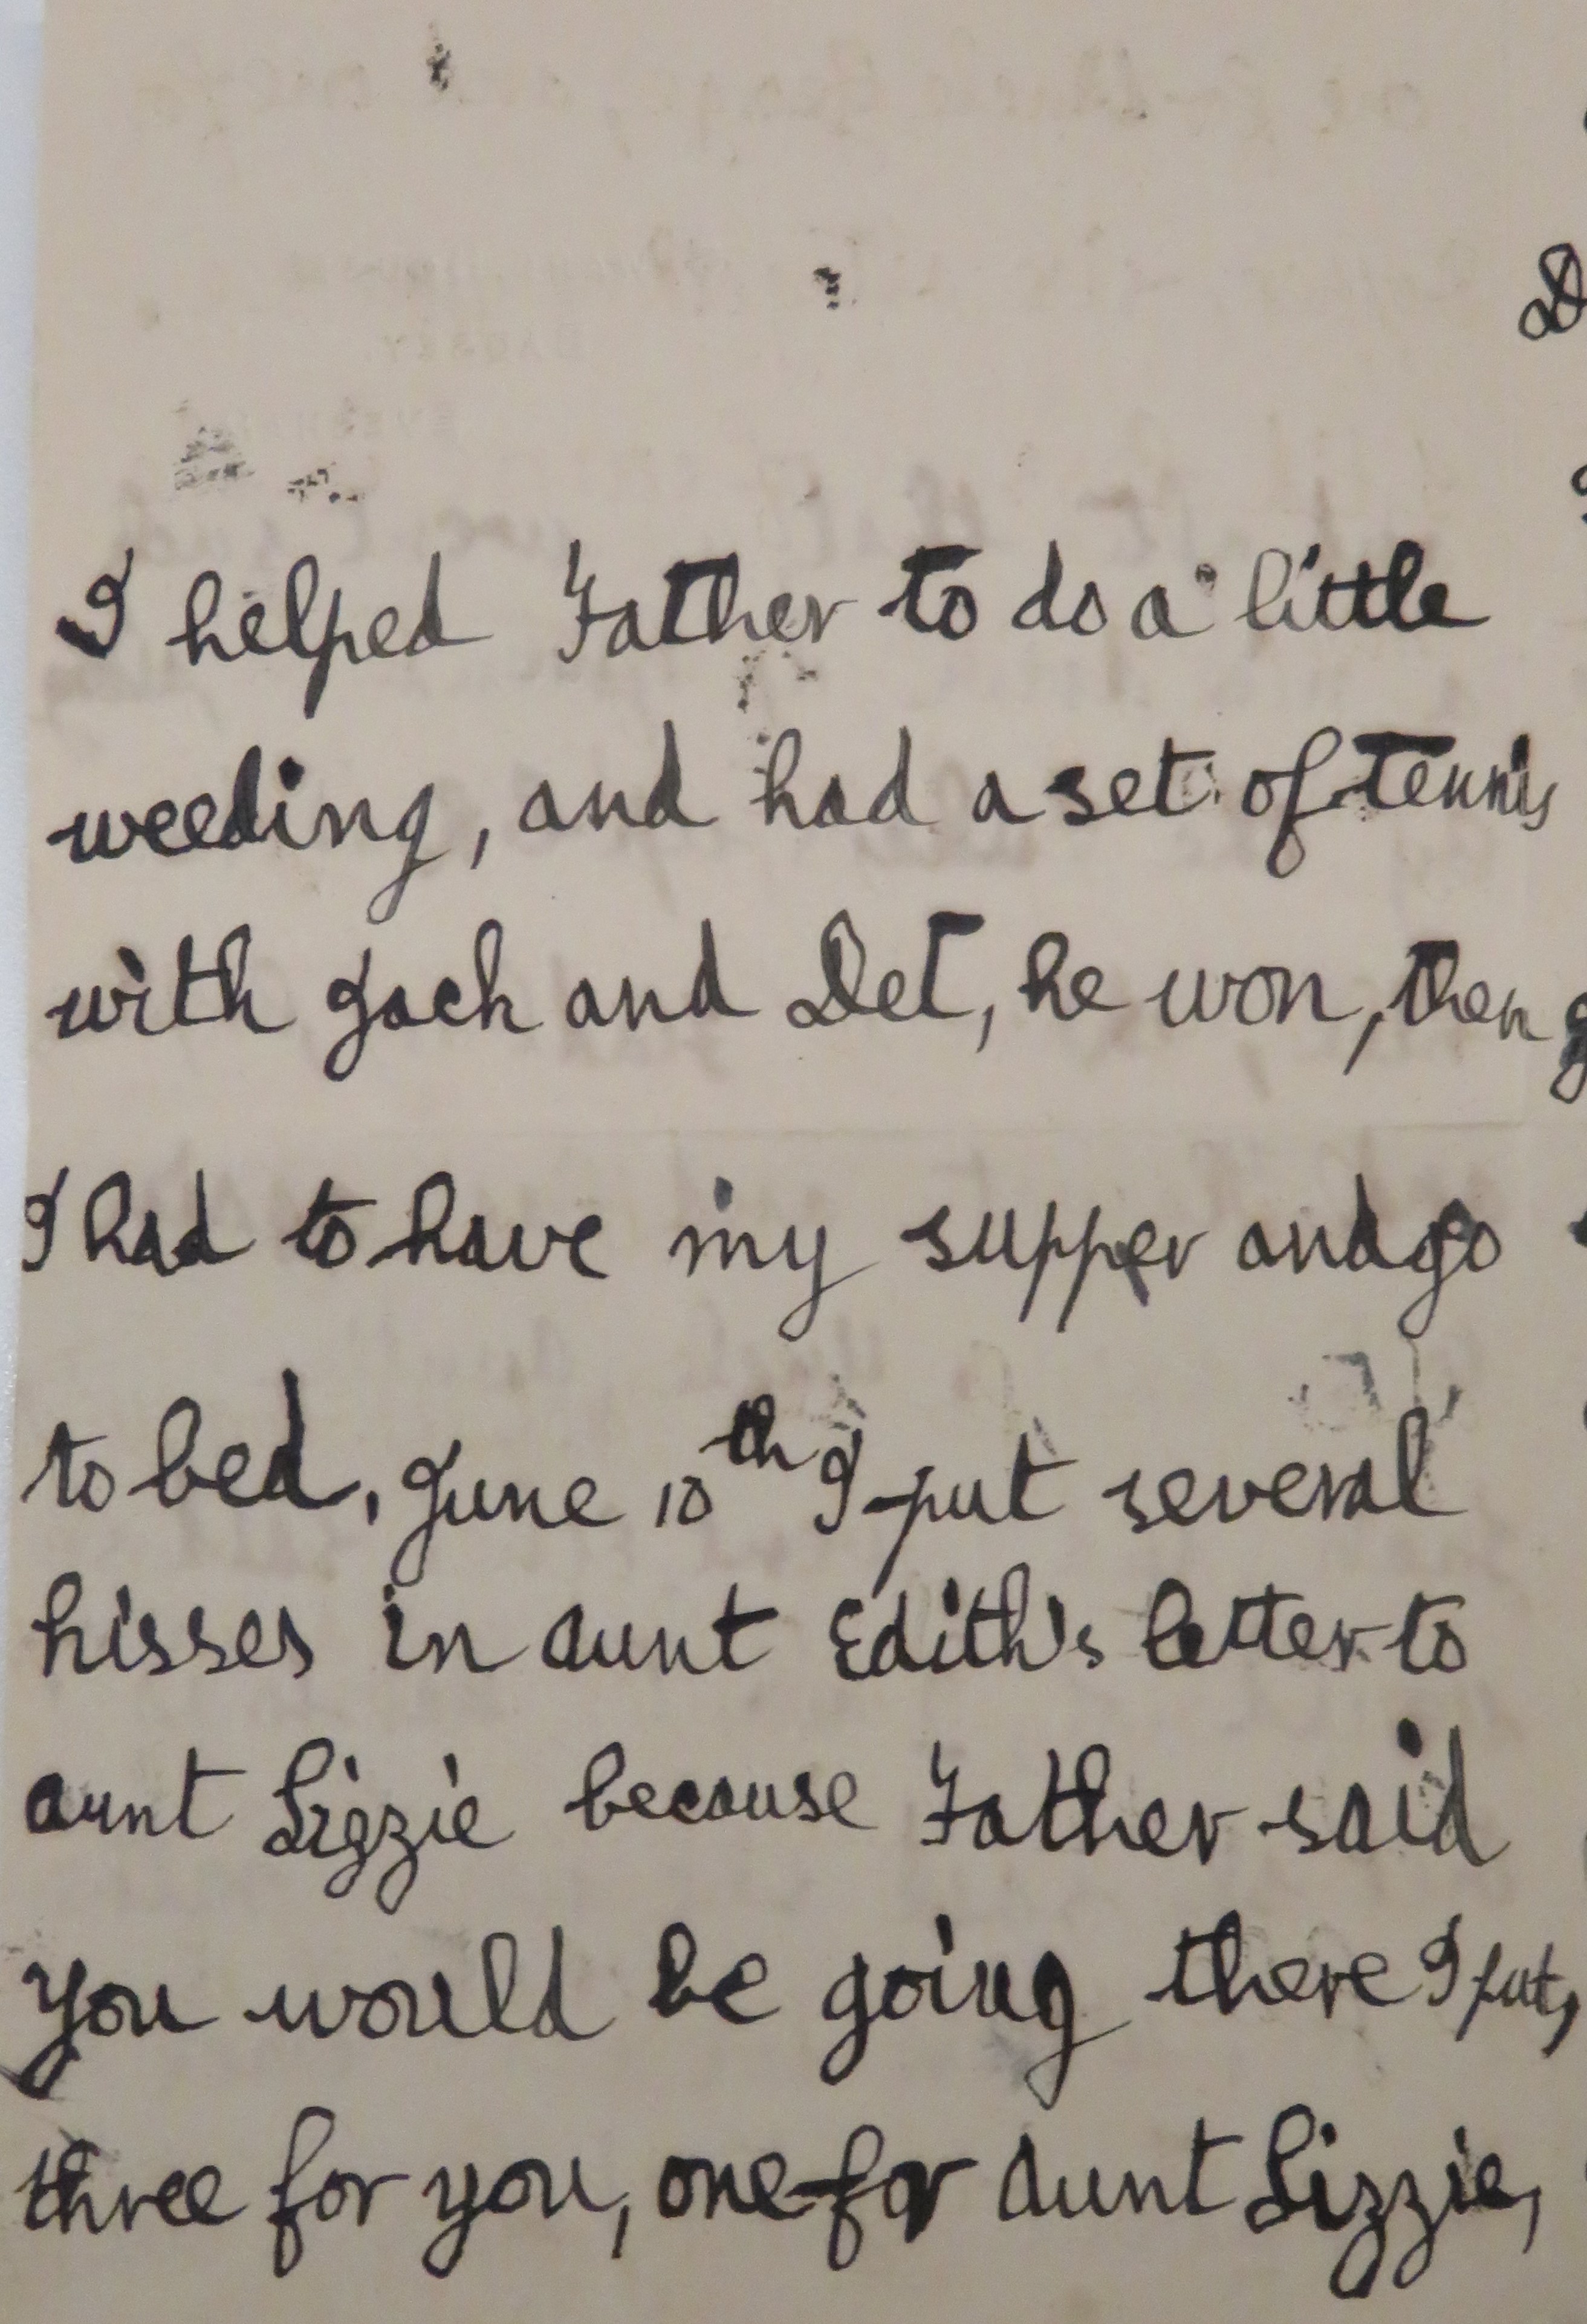 I helped Father to do a little
weeding, and had a set of tennis
with Jack and Det, he won, then
I had to have my supper and go
to bed, June 10th I put several
kisses in aunt Edith's letter to
aunt Lizzie because Father said
you would be going there I put,
three for you, one for aunt Lizzie,